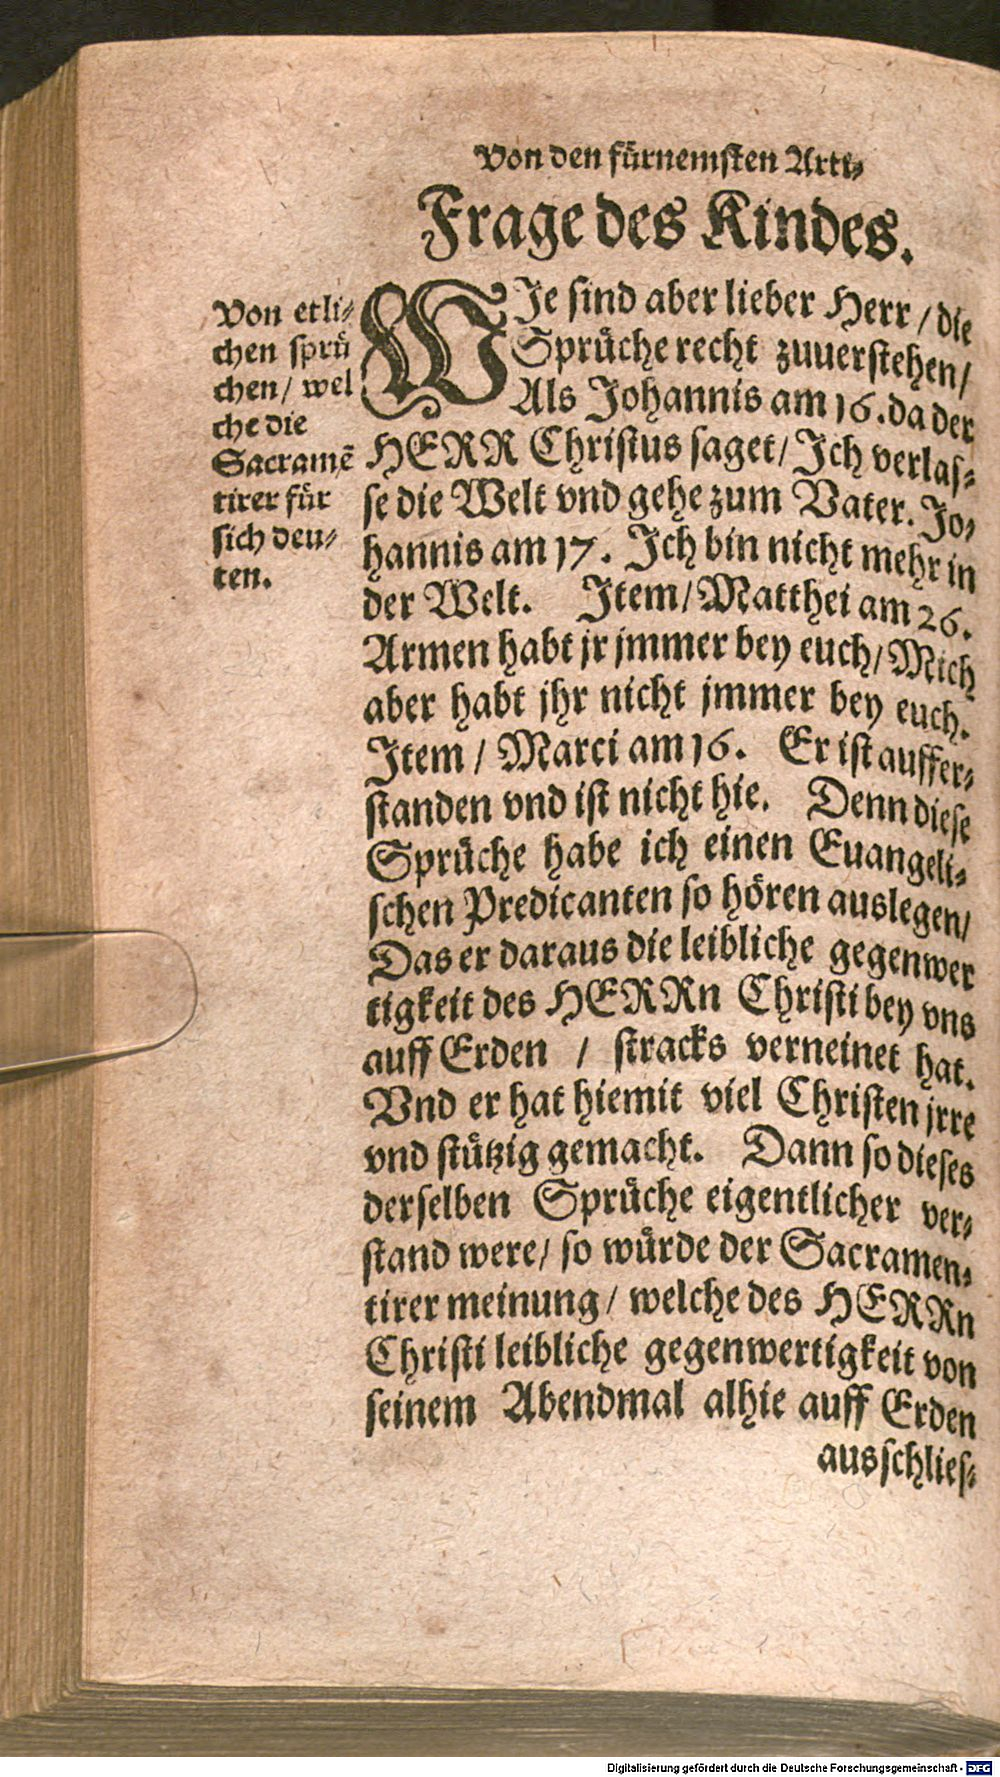 Von den fürnemsten Arti-
Frage des Kindes.
Von etli-
chen sprü
chen/ wel
che die
Sacramē
tirer für
sich deu-
ten.
WIe sind aber lieber Herr/ die
Sprüche recht zuuerstehen/
Als Johannis am 16. da der
HERR Christus saget/ Ich verlas-
se die Welt vnd gehe zum Vater. Jo-
hannis am 17. Ich bin nicht mehr in
der Welt. Item/ Matthei am 26.
Armen habt jr jmmer bey euch/ Mich
aber habt jhr nicht jmmer bey euch.
Item/ Marci am 16. Er ist auffer-
standen vnd ist nicht hie. Denn diese
Sprüche habe ich einen Euangeli-
schen Predicanten so hören auslegen/
Das er daraus die leibliche gegenwer
tigkeit des HERRn Christi bey vns
auff Erden / stracks verneinet hat.
Vnd er hat hiemit viel Christen jrre
vnd stützig gemacht. Dann so dieses
derselben Sprüche eigentlicher ver-
stand were/ so würde der Sacramen-
tirer meinung/ welche des HERRn
Christi leibliche gegenwertigkeit von
seinem Abendmal alhie auff Erden
ausschlies-
Digitalisierung gefördert durch die Deutsche Forschungsgemeinschaft - DFG